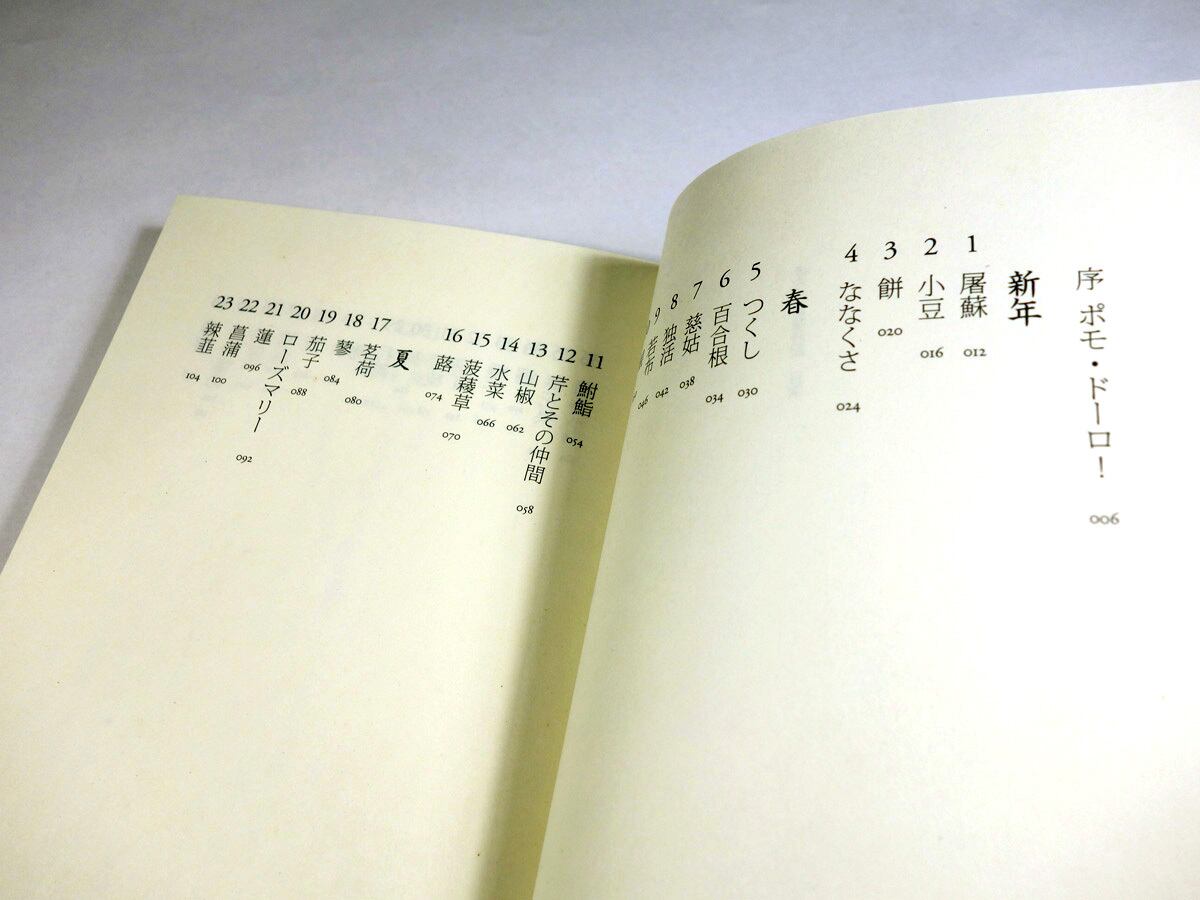 序 ポモ・ドーロ！ 006
新年
1 屠蘇 012
2 小豆 016
3 餅 020
4 ななくさ 024
春
5 つくし 030
6 百合根 034
7 慈姑 038
8 独活 042
9 若布 046
11 鮒鮨 054
12 芹とその仲間 058
13 山椒 062
14 水菜 066
15 菠薐草 070
16 蕗 074
夏
17 茗荷 080
18 蓼 084
19 茄子 088
20 ローズマリー 092
21 蓮 096
22 菖蒲 100
23 辣韮 104